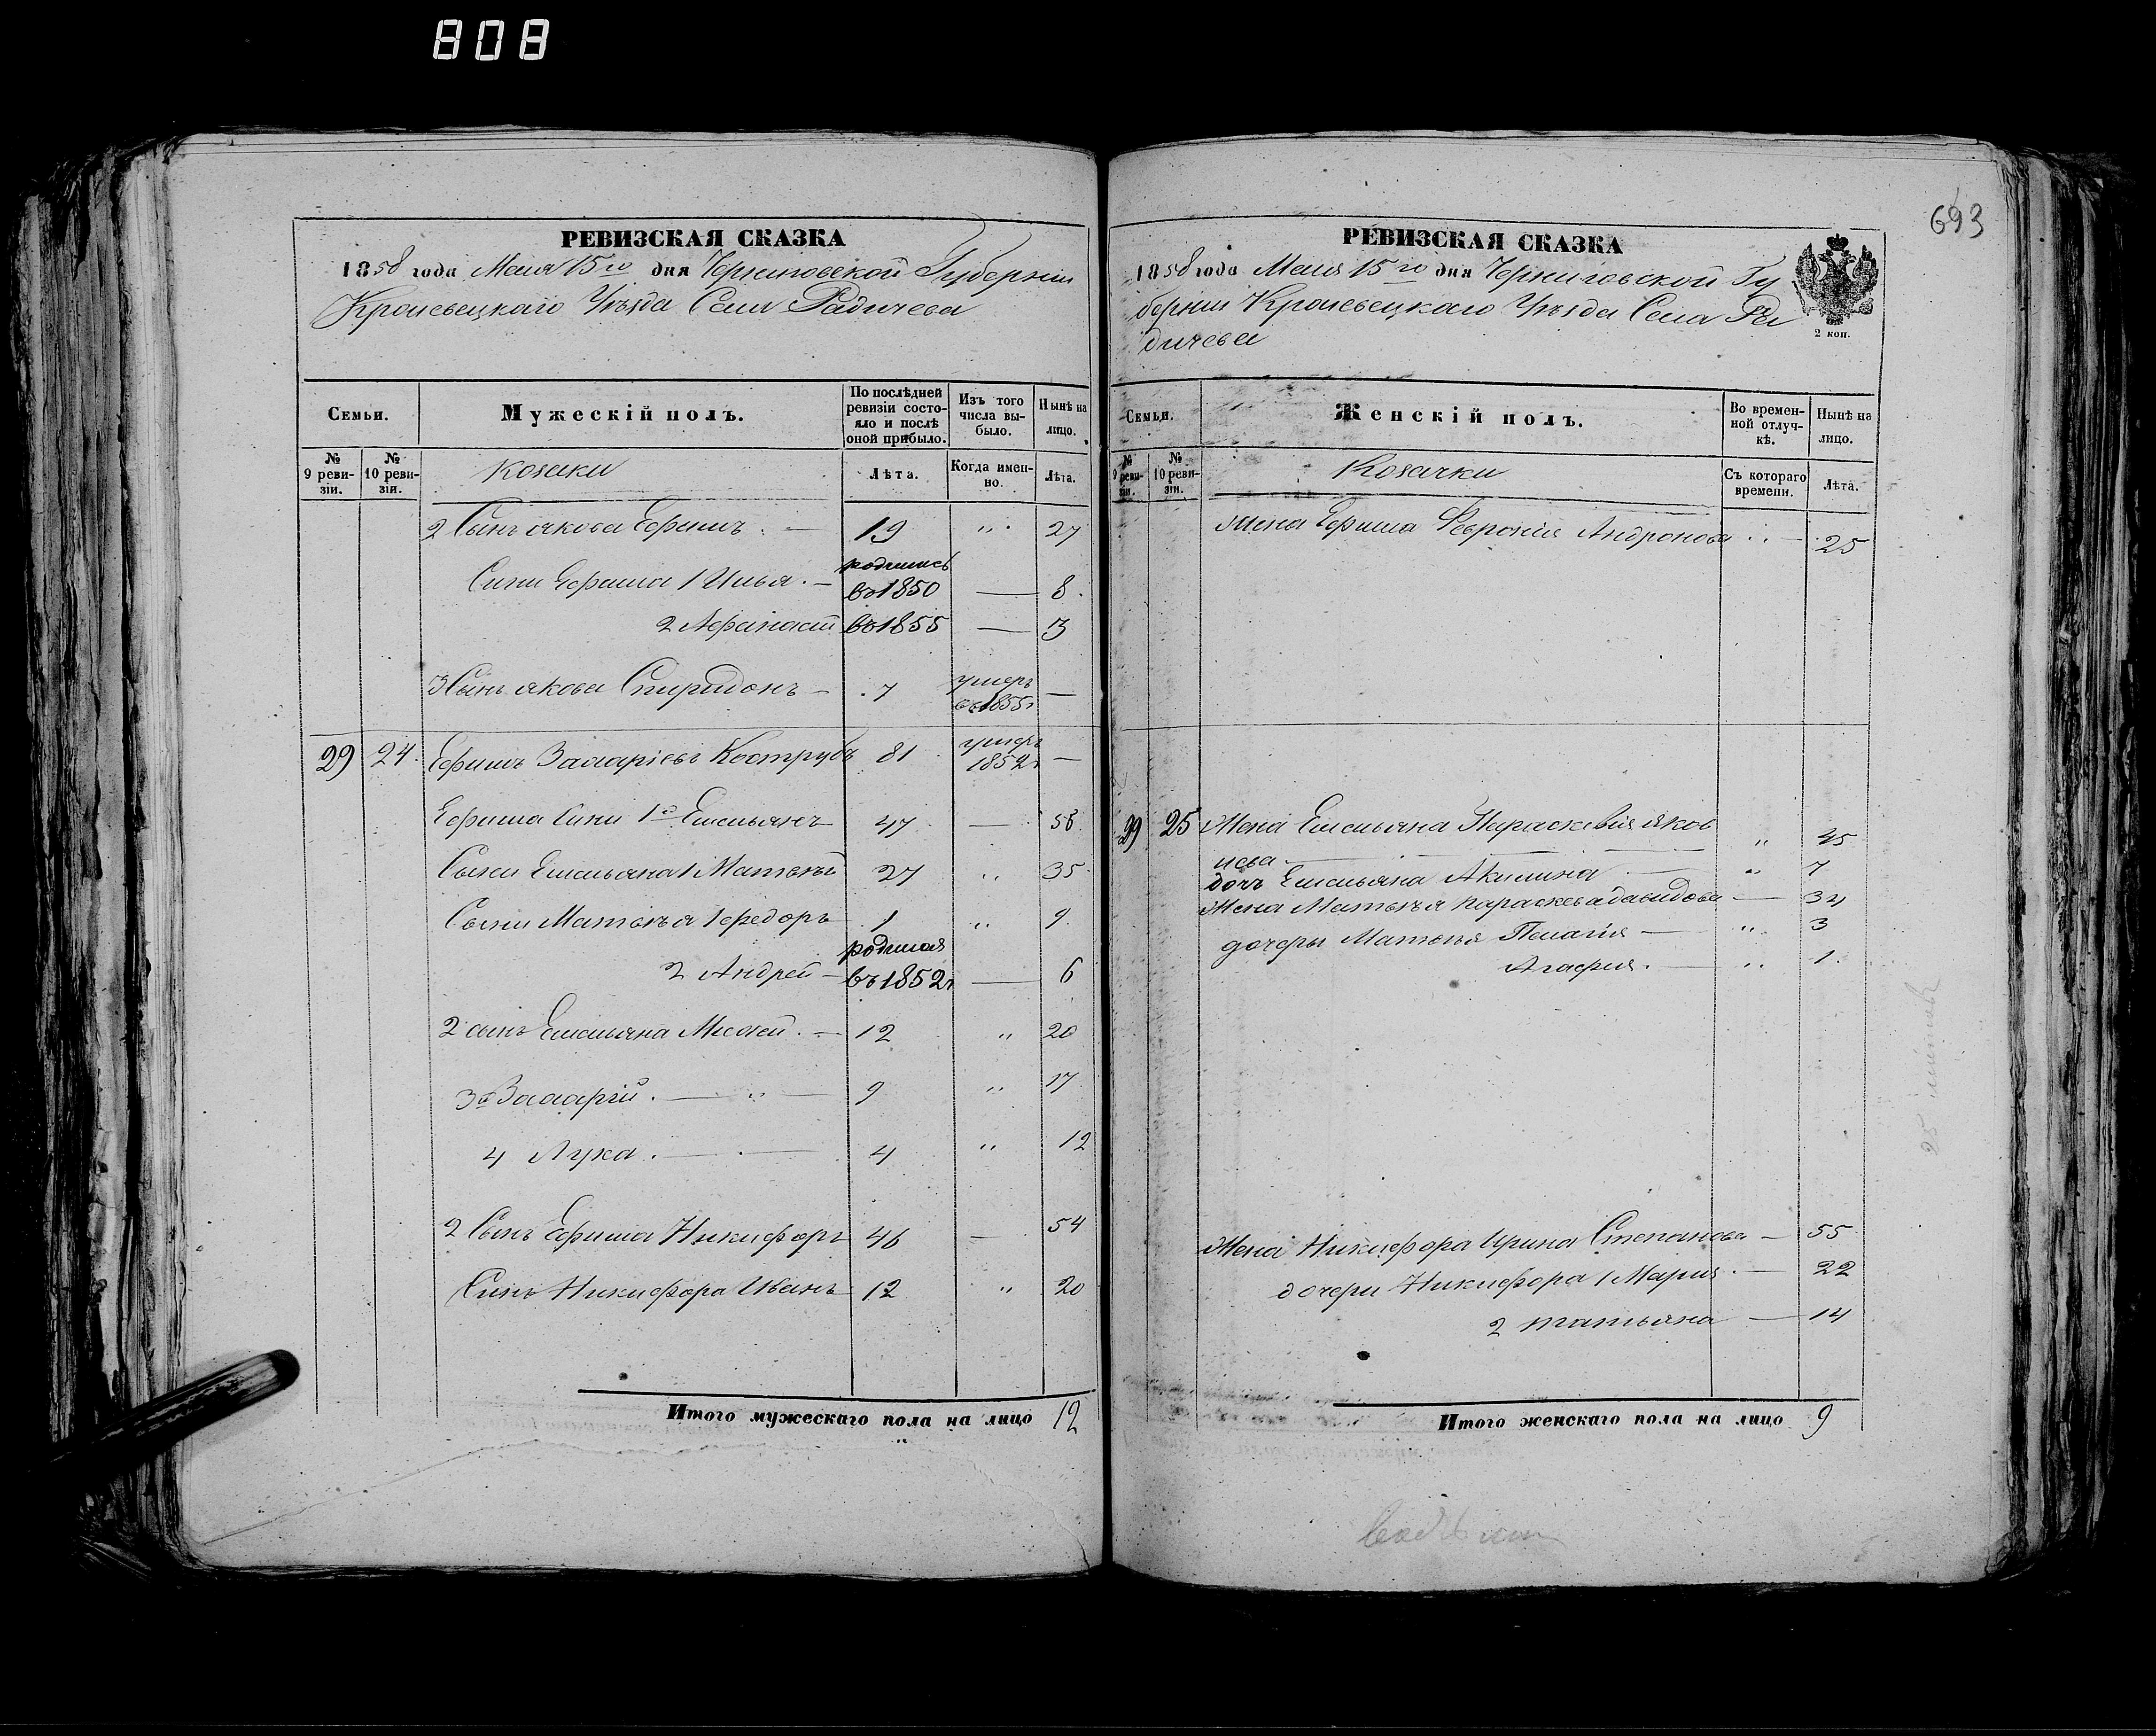 808
693
РЕВИЗСКАЯ СКАЗКА
1858 года Мая 15го дня Черниговской Губернии
Кролевецкаго Уѣзда Села Радичева
Семьи.
Мужескій полъ.
По послѣдней ревизіи состояло и послѣ оной прибыло.
Изъ того числа выбыло.
Нынѣ на лицо.
№ 9 ревизіи.
№ 10 ревизіи.
Козаки
Лѣта.
Когда именно.
Лѣта.
2 Сынъ Якова Ефимъ 19 " 27
родились
Сини Ефима 1 Илья въ 1850 — 8
2 Афанасий въ 1855 — 3
3 Сынъ Якова Спиридонъ 7 умеръ въ 1855г —
29 24 Ефимъ Захаріевъ Кострубъ 81 умеръ 1852г —
Ефима Сини 1й Емельянъ 47 — 58
Сыни Емельяна 1 Матвѣй 27 " 35
Сыни Матвѣя 1 Федоръ 1 " 9
родился
2 Андрей въ 1852г — 6
2 сынъ Емельяна Мусей 12 " 20
3й Захарій " 9 " 17
4 Лука 4 " 12
2 Сынъ Ефима Никифоръ 46 — 54
Синъ Никифора Иванъ 12 " 20
Итого мужескаго пола на лицо 12
РЕВИЗСКАЯ СКАЗКА
1858 года Мая 15го дня Черниговской Гу
бернии Кролевецкаго Уѣзда Села Ра
дичева
2 коп.
Семьи.
Женскій полъ.
Во временной отлучкѣ.
Нынѣ на лицо.
№ 9 ревизіи.
№ 10 ревизіи.
Козачки
Съ котораго времени.
Лѣта.
Жена Ефима Феврония Андронова " 25
29 25 Жена Емельяна Параскевия Яков
лева " 45
дочъ Емельяна Акилина " 7
Жена Матвѣя Параскева Давидова — 34
дочеры Матвѣя Пелагія " 3
Агафия " 1
Жена Никифора Ирина Степанова — 55
дочери Никифора 1 Мария — 22
2 татьяна — 14
Итого женскаго пола на лицо 9